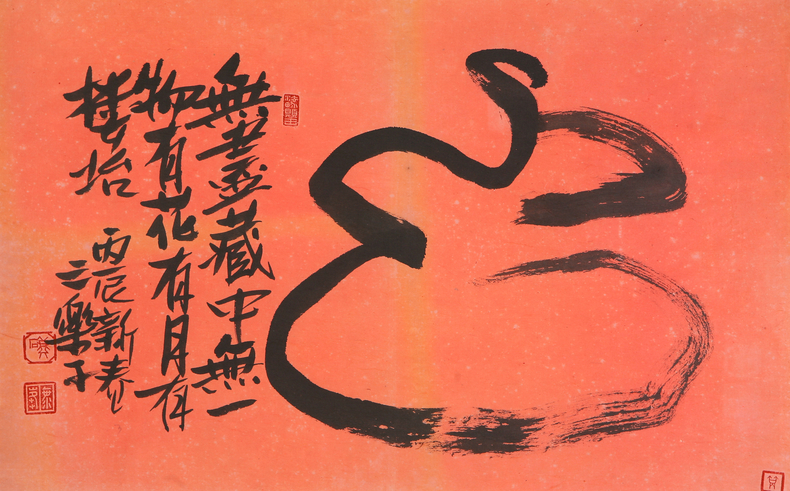 無盡藏中無一
物有花有月有
樓坮
丙辰新春
樂子